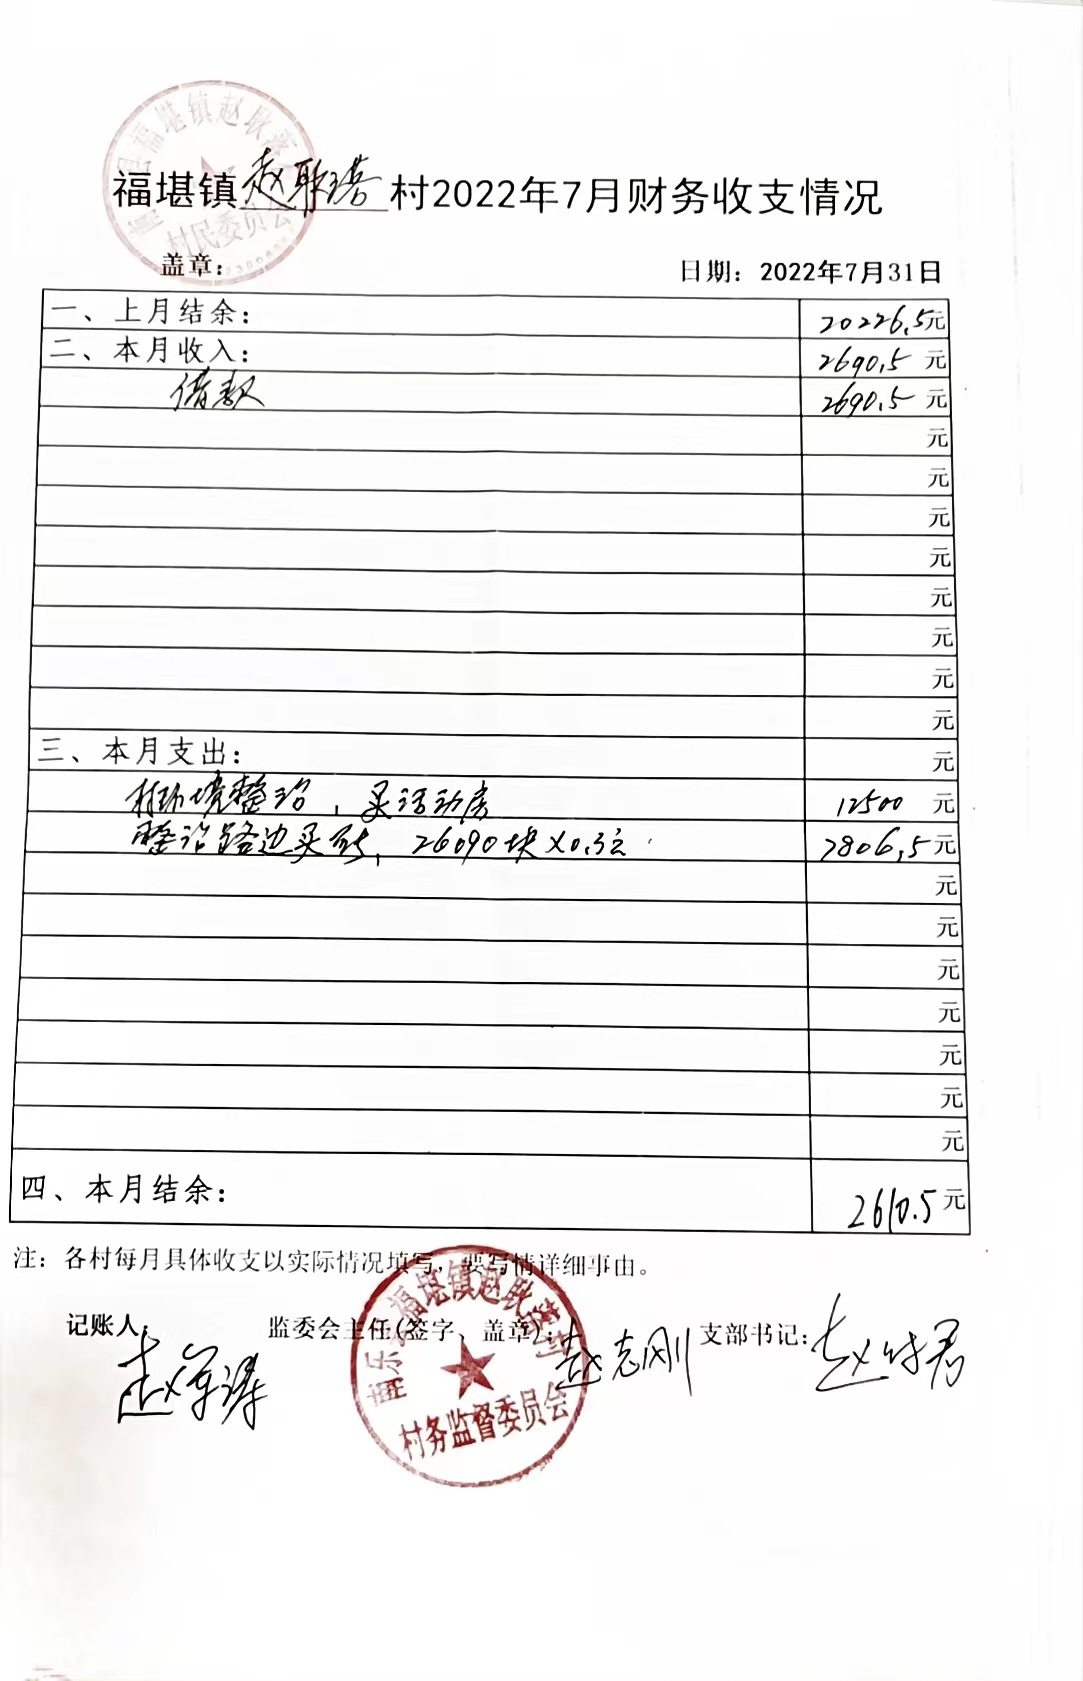 福堪镇赵耿落村2022年7月财务收支情况
盖章： 日期：2022年7月31日
一、上月结余： 20226.5元
二、本月收入： 2690.5元
借款 2690.5元
元
元
元
元
元
元
元
元
三、本月支出： 元
村环境整治，买活动房 12500元
整治路边买砖，26090块×0.3元 7806.5元
元
元
元
元
元
元
元
四、本月结余： 2610.5元
注：各村每月具体收支以实际情况填写，要写情详细事由。
记账人： 监委会主任(签字、盖章)：赵志刚 支部书记：
村民委员会
村务监督委员会